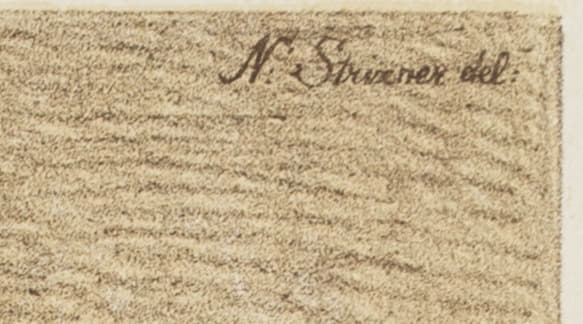 N. Strixner del: